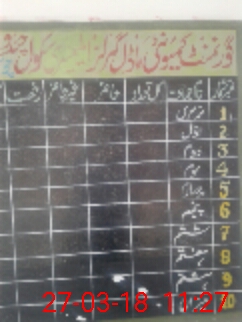 گورنمنٹ کمیونٹی ماڈل گرلز ایلیمنٹری سکول
نمبر شمار نام جماعت کل تعداد حاضر غیر حاضر رخصت
1 نرسری
2 اول
3 دوم
4 سوم
5 چہارم
6 پنجم
7 ششم
8 ہفتم
9 ہشتم
10
27-03-18 11:27